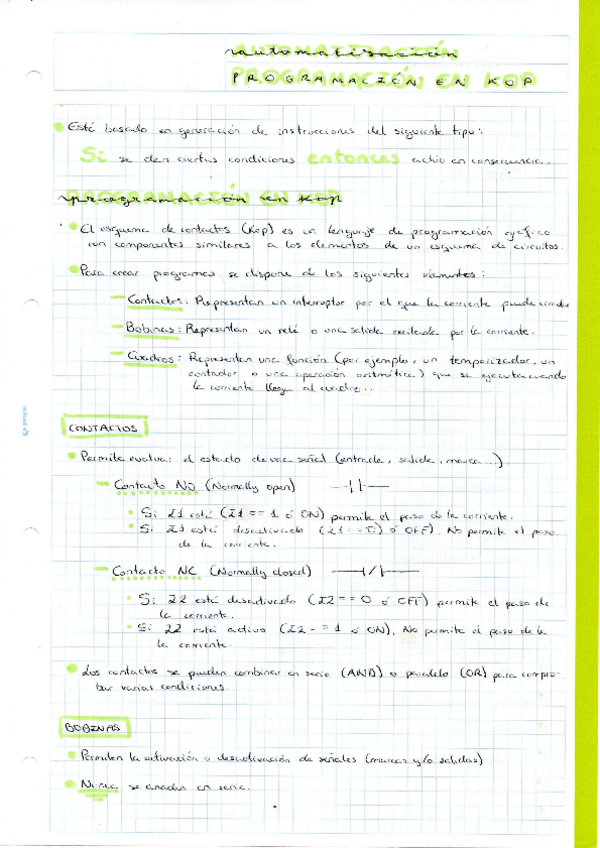 automatización
PROGRAMACIÓN EN KOP
Está basado en generación de instrucciones del siguiente tipo:
Si se dan ciertas condiciones entonces actúo en consecuencia.
programación en KOP
El esquema de contactos (KOP) es un lenguaje de programación gráfico
con componentes similares a los elementos de un esquema de circuitos.
Para crear programas se dispone de los siguientes elementos:
— Contactos: Representan un interruptor por el que la corriente puede circular
— Bobinas: Representan un relé o una salida excitada por la corriente.
— Cuadros: Representan una función (por ejemplo, un temporizador, un
contador o una operación aritmética) que se ejecuta cuando
la corriente llega al cuadro..
CONTACTOS
Permite evaluar el estado de una señal (entrada, salida, marca...)
— Contacto NO (Normally open)
Si I1 está (I1 == 1 ó ON) permite el paso de la corriente.
Si I1 está desactivado (I1 == 0) ó OFF). No permite el paso
de la corriente.
— Contacto NC (Normally closed)
Si I2 está desactivado (I2 == 0 ó OFF) permite el paso de
la corriente.
Si I2 está activo (I2 == 1 ó ON), No permite el paso de la
la corriente.
Los contactos se pueden combinar en serie (AND) o paralelo (OR) para compro-
bar varias condiciones.
BOBINAS
Permiten la activación o desactivación de señales (marcas y/o salidas)
Nunca se añaden en serie.